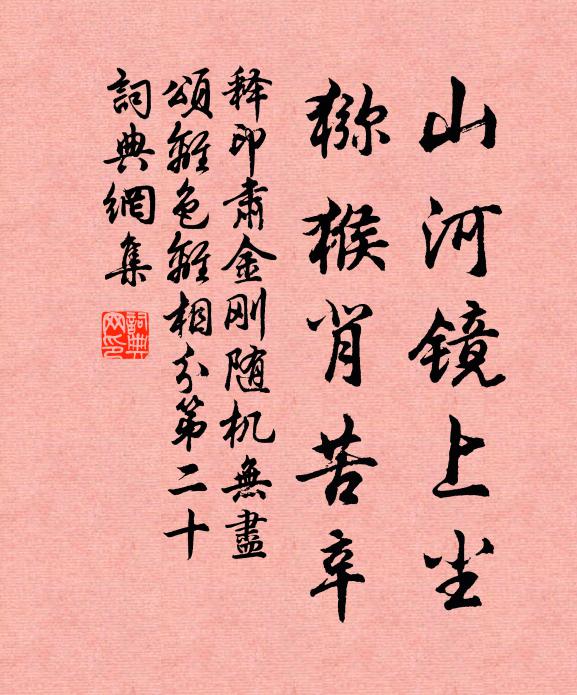 山河镜上尘
猕猴背苦辛
释印肃金刚随机無盡
頌離色離相分第二十
詞典網集
詞典網印